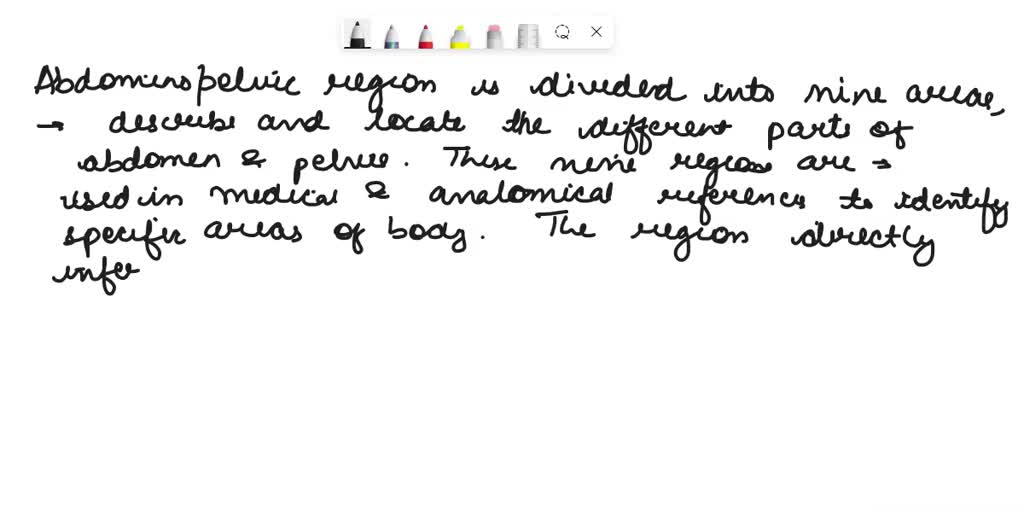 Abdominopelvic region is divided into nine areas,
→ describe and locate the different parts of
abdomen & pelvic. These nine regions are →
used in medical & anatomical references to identify
specific areas of body. The region directly
infer